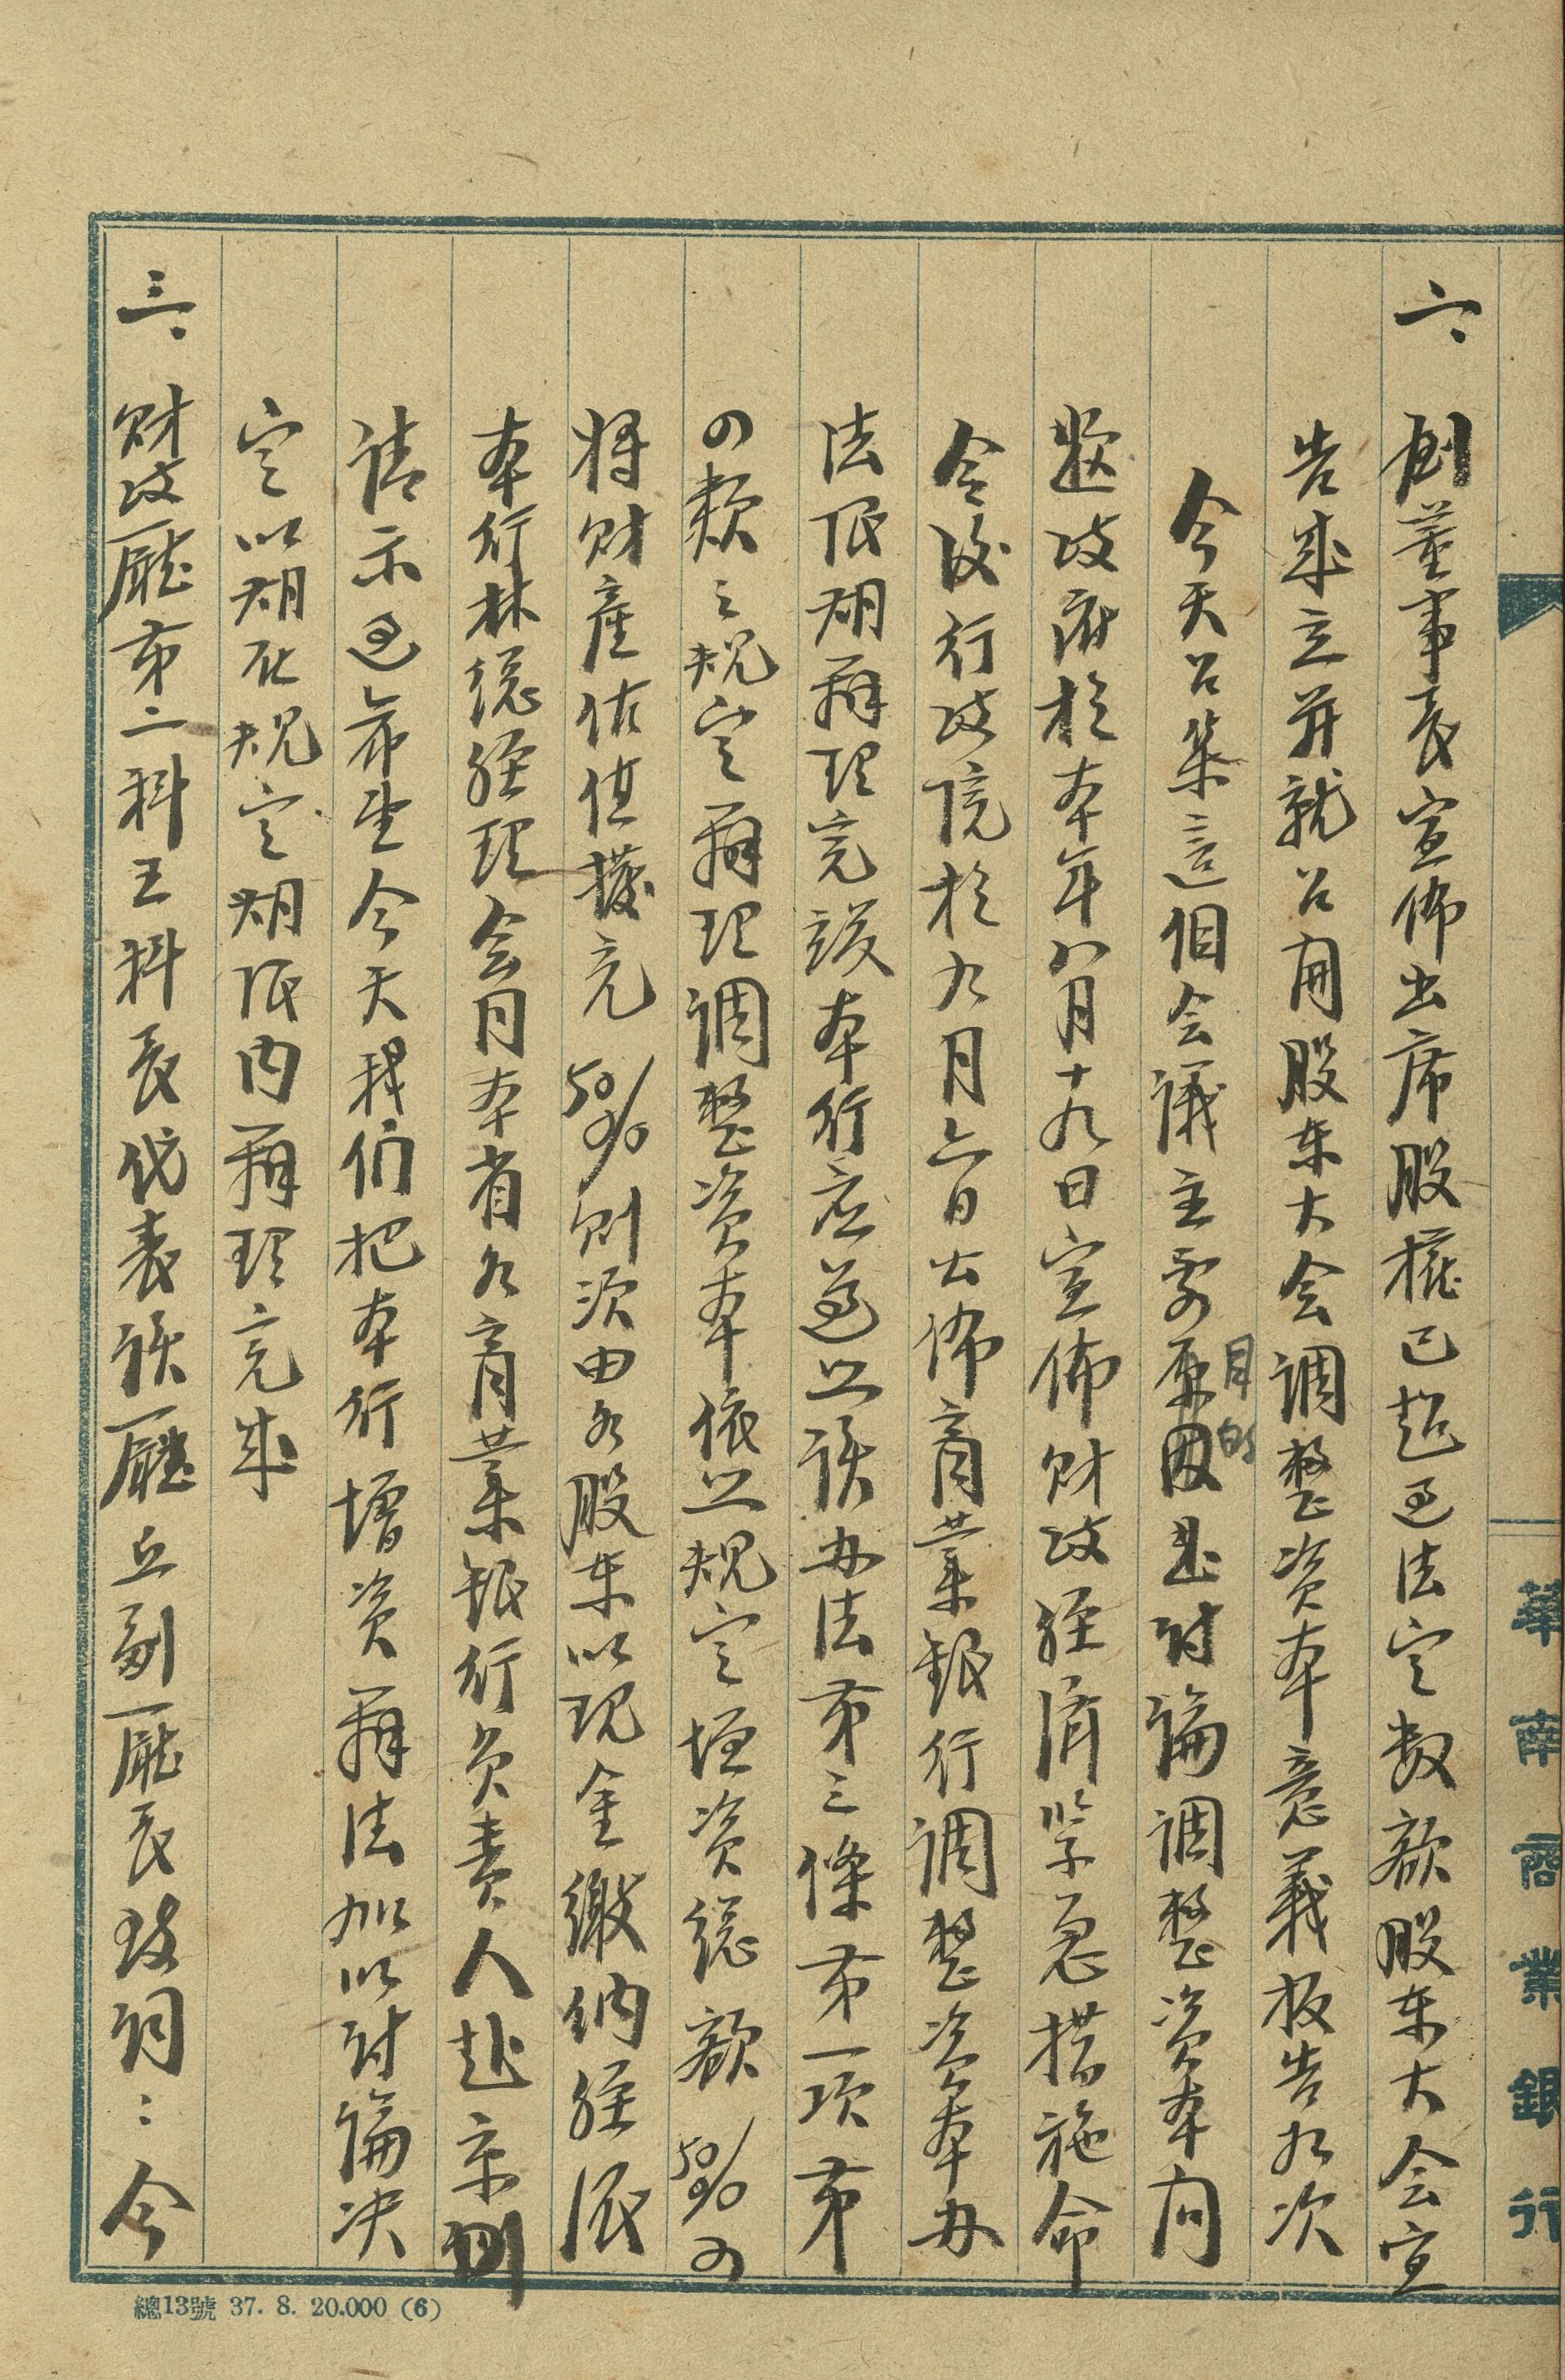 華南商業銀行
二、劉董事長宣佈出席股權已超过法定数額股東大会宣
告成立并就召開股東大会調整資本意義报告如次
今天召集這個会議主要目的是討論調整資本問
題政府於本年八月十九日宣佈財政經濟緊急措施命
令後行政院於九月六日公佈商業銀行調整資本办
法限期辦理完竣本行应遵照該办法第三條第一項第
四款之規定辦理調整資本依照規定增資總額50%可
將財產估值撥充50%則須由各股東以現金繳納經派
本行林總經理会同本省各商業銀行負責人赴京
請示过希望今天我们把本行增資辦法加以討論决
定以期在規定期限内辦理完成
三、財政廳第二科王科長代表該廳丘副廳長致詞：今
總13號 37. 8. 20.000 (6)